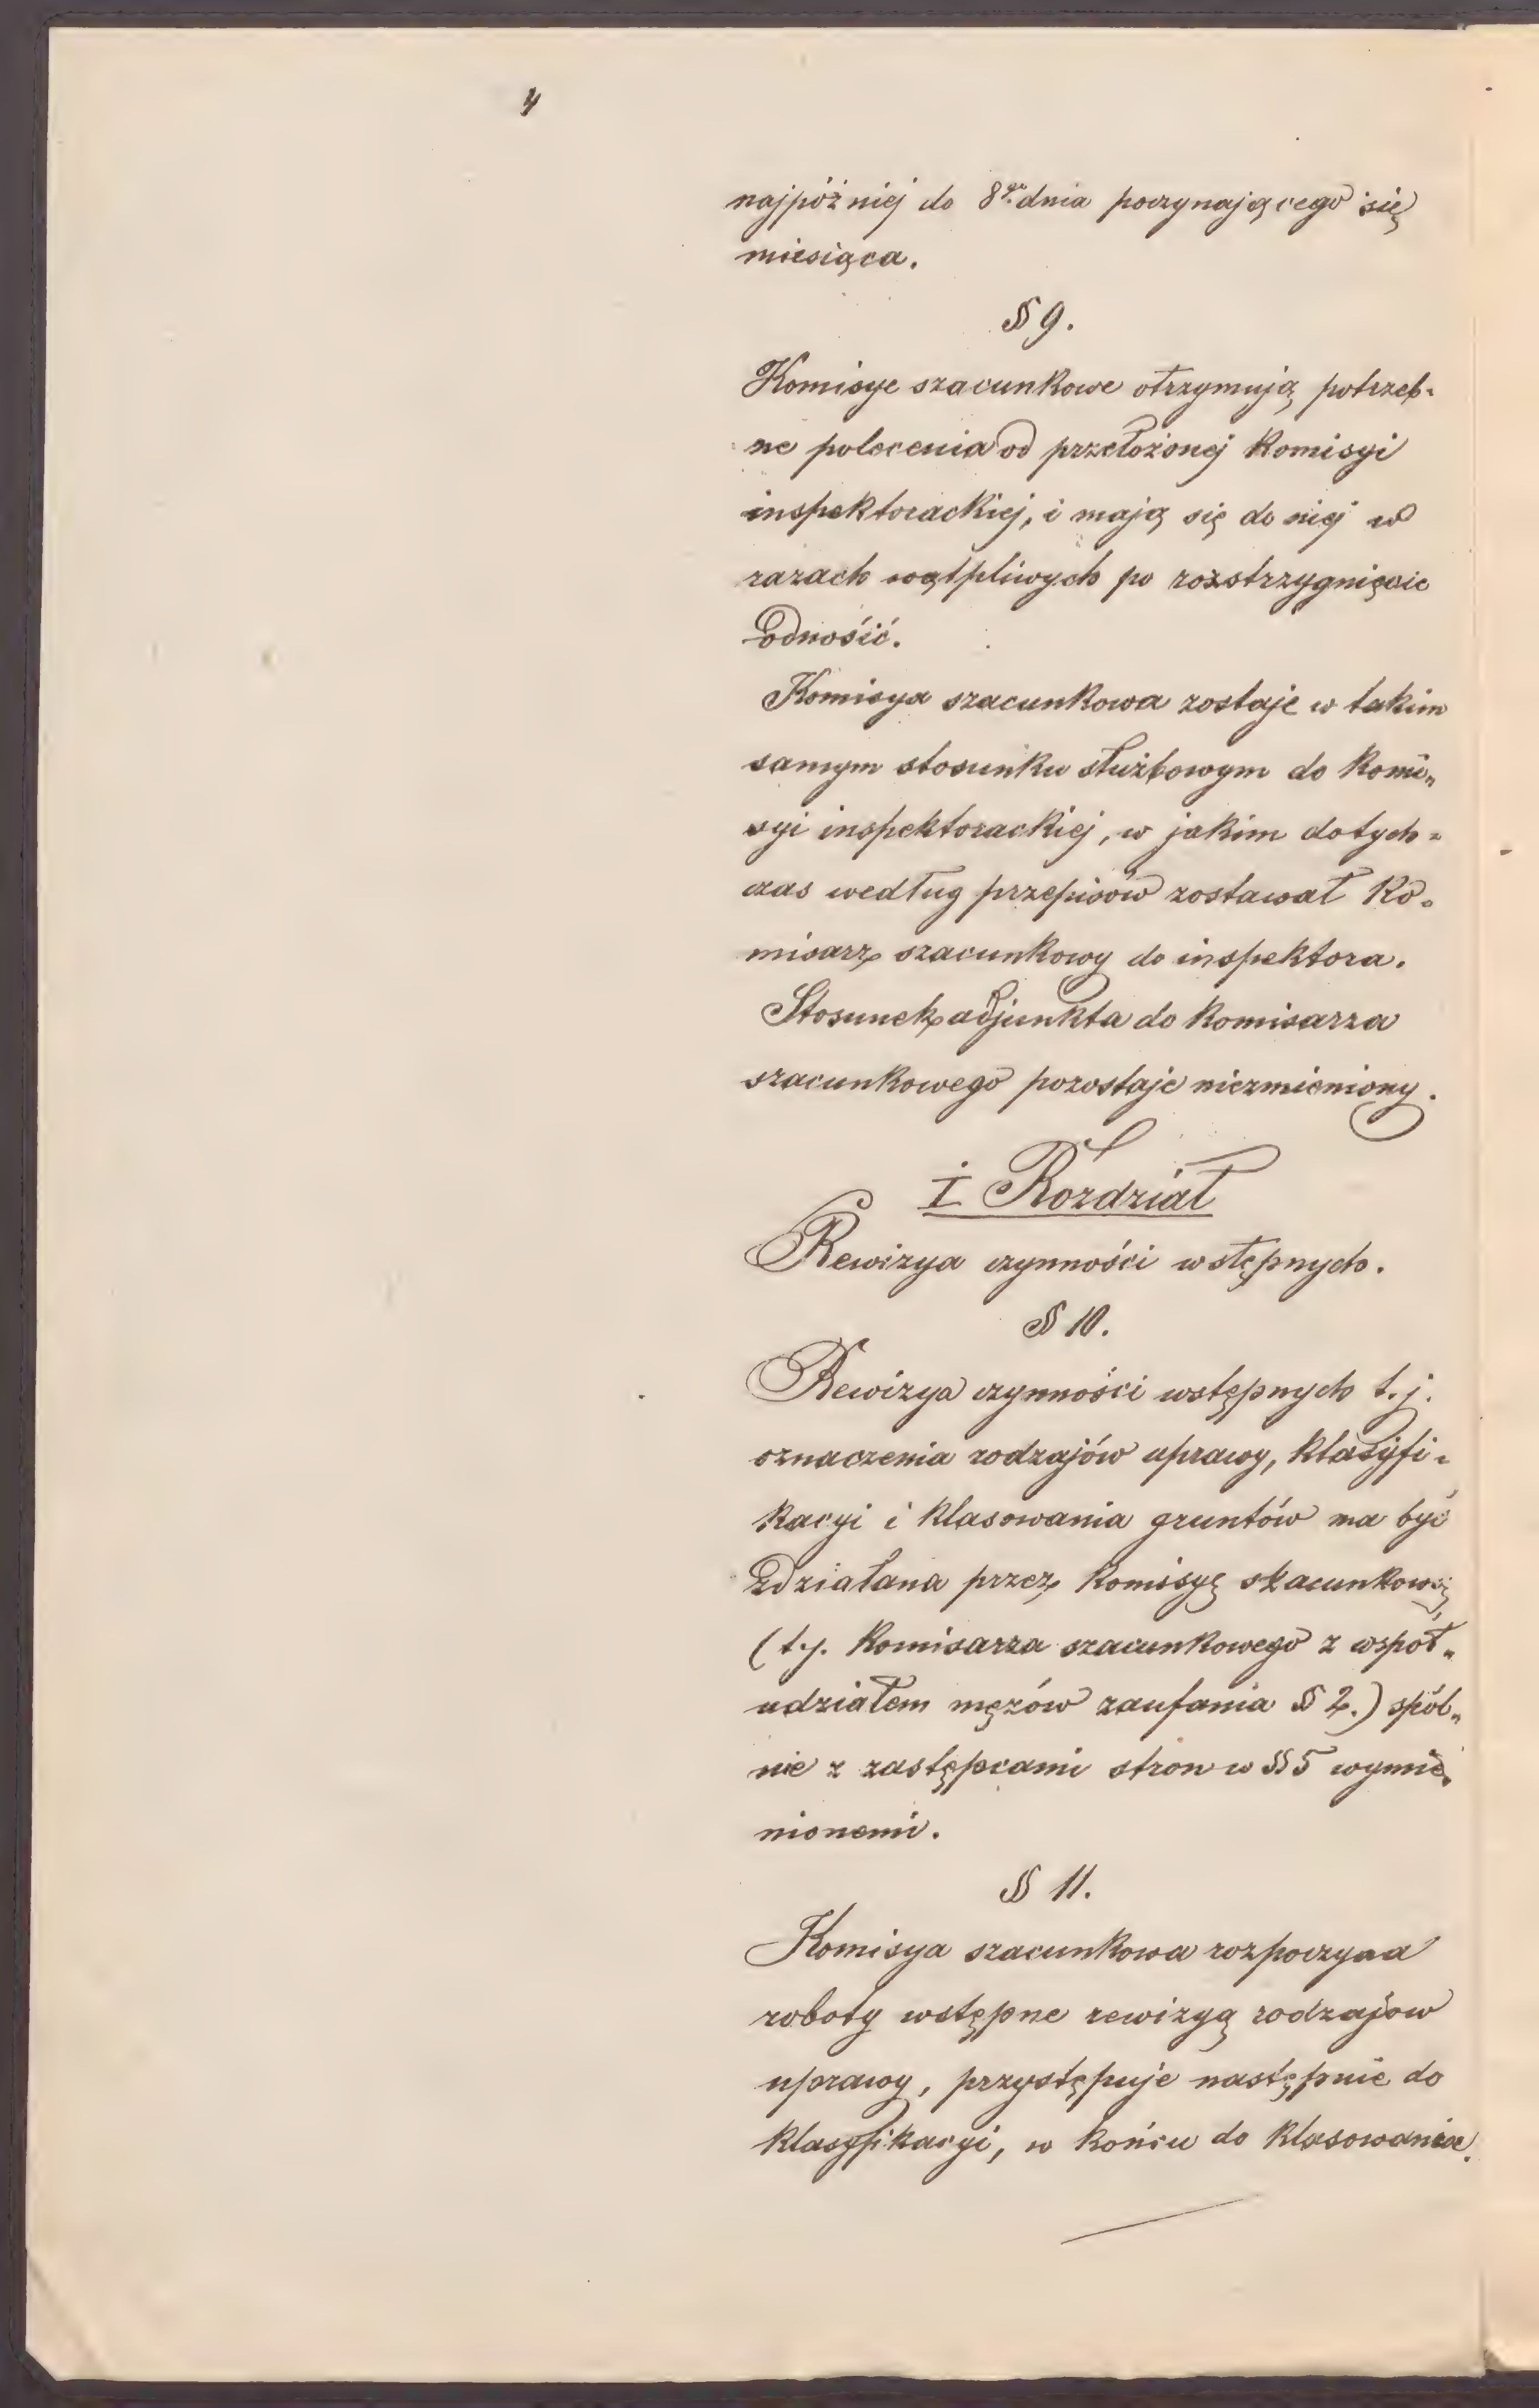 4
najpóźniej do 8go dnia poczynającego się
miesiąca.
§ 9.
Komisye szacunkowe otrzymują potrzeb-
ne polecenia od przełożonej Komisyi
inspektorackiej, i mają się do niej w
razach wątpliwych po rozstrzygnięcie
odnośić.
Komisya szacunkowa zostaje w takim
samym stosunku służbowym do Komi„
syi inspektorackiej, w jakim dotych-
czas według przepisów zostawał Ko-
misarz szacunkowy do inspektora.
Stosunek adjunkta do Komisarza
szacunkowego pozostaje niezmieniony.
I Rozdział
Rewizya czynności wstępnych.
§ 10.
Rewizya czynności wstępnych t. j.
oznaczenia rodzajów uprawy, klasyfi-
kacyi i klasowania gruntów ma być
zdziałana przez Komisyę szacunkową
(t. j. Komisarza szacunkowego z współ„
udziałem mężów zaufania § 2.) spól„
nie z zastępcami stron w § 5 wymie-
nionemi.
§ 11.
Komisya szacunkowa rozpoczyna
roboty wstępne rewizyą rodzajow
uprawy, przystępuje następnie do
klasyfikacyi, w końcu do klasowania.